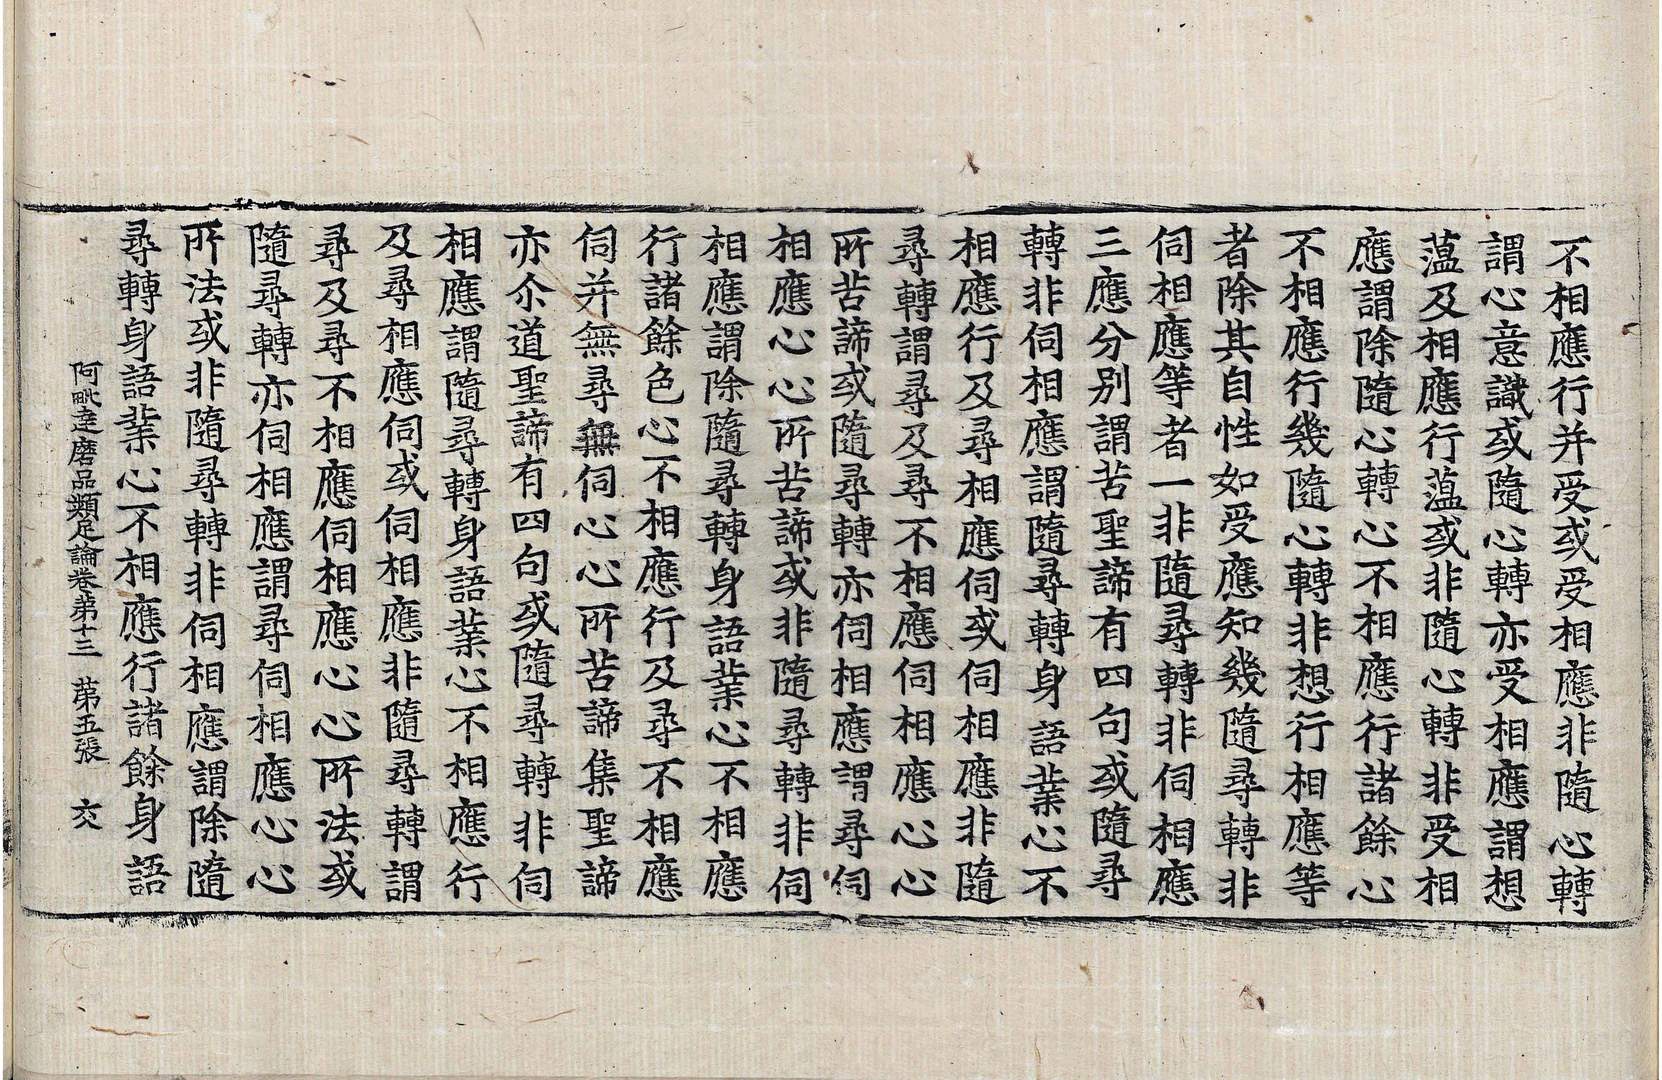 不相應行并受或受相應非隨心轉
謂心意識或隨心轉亦受相應謂想
薀及相應行薀或非隨心轉非受相
應謂除隨心轉心不相應行諸餘心
不相應行幾隨心轉非想行相應等
者除其自性如受應知幾隨尋轉非
伺相應等者一非隨尋轉非伺相應
三應分別謂苦聖諦有四句或隨尋
轉非伺相應謂隨尋轉身語業心不
相應行及尋相應伺或伺相應非隨
尋轉謂尋及尋不相應伺相應心心
所苦諦或隨尋轉亦伺相應謂尋伺
相應心心所苦諦或非隨尋轉非伺
相應謂除隨尋轉身語業心不相應
行諸餘色心不相應行及尋不相應
伺并無尋無伺心心所苦諦集聖諦
亦尒道聖諦有四句或隨尋轉非伺
相應謂隨尋轉身語業心不相應行
及尋相應伺或伺相應非隨尋轉謂
尋及尋不相應伺相應心心所法或
隨尋轉亦伺相應謂尋伺相應心心
所法或非隨尋轉非伺相應謂除隨
尋轉身語業心不相應行諸餘身語
阿毗達磨品類足論卷第十三 第五張 交